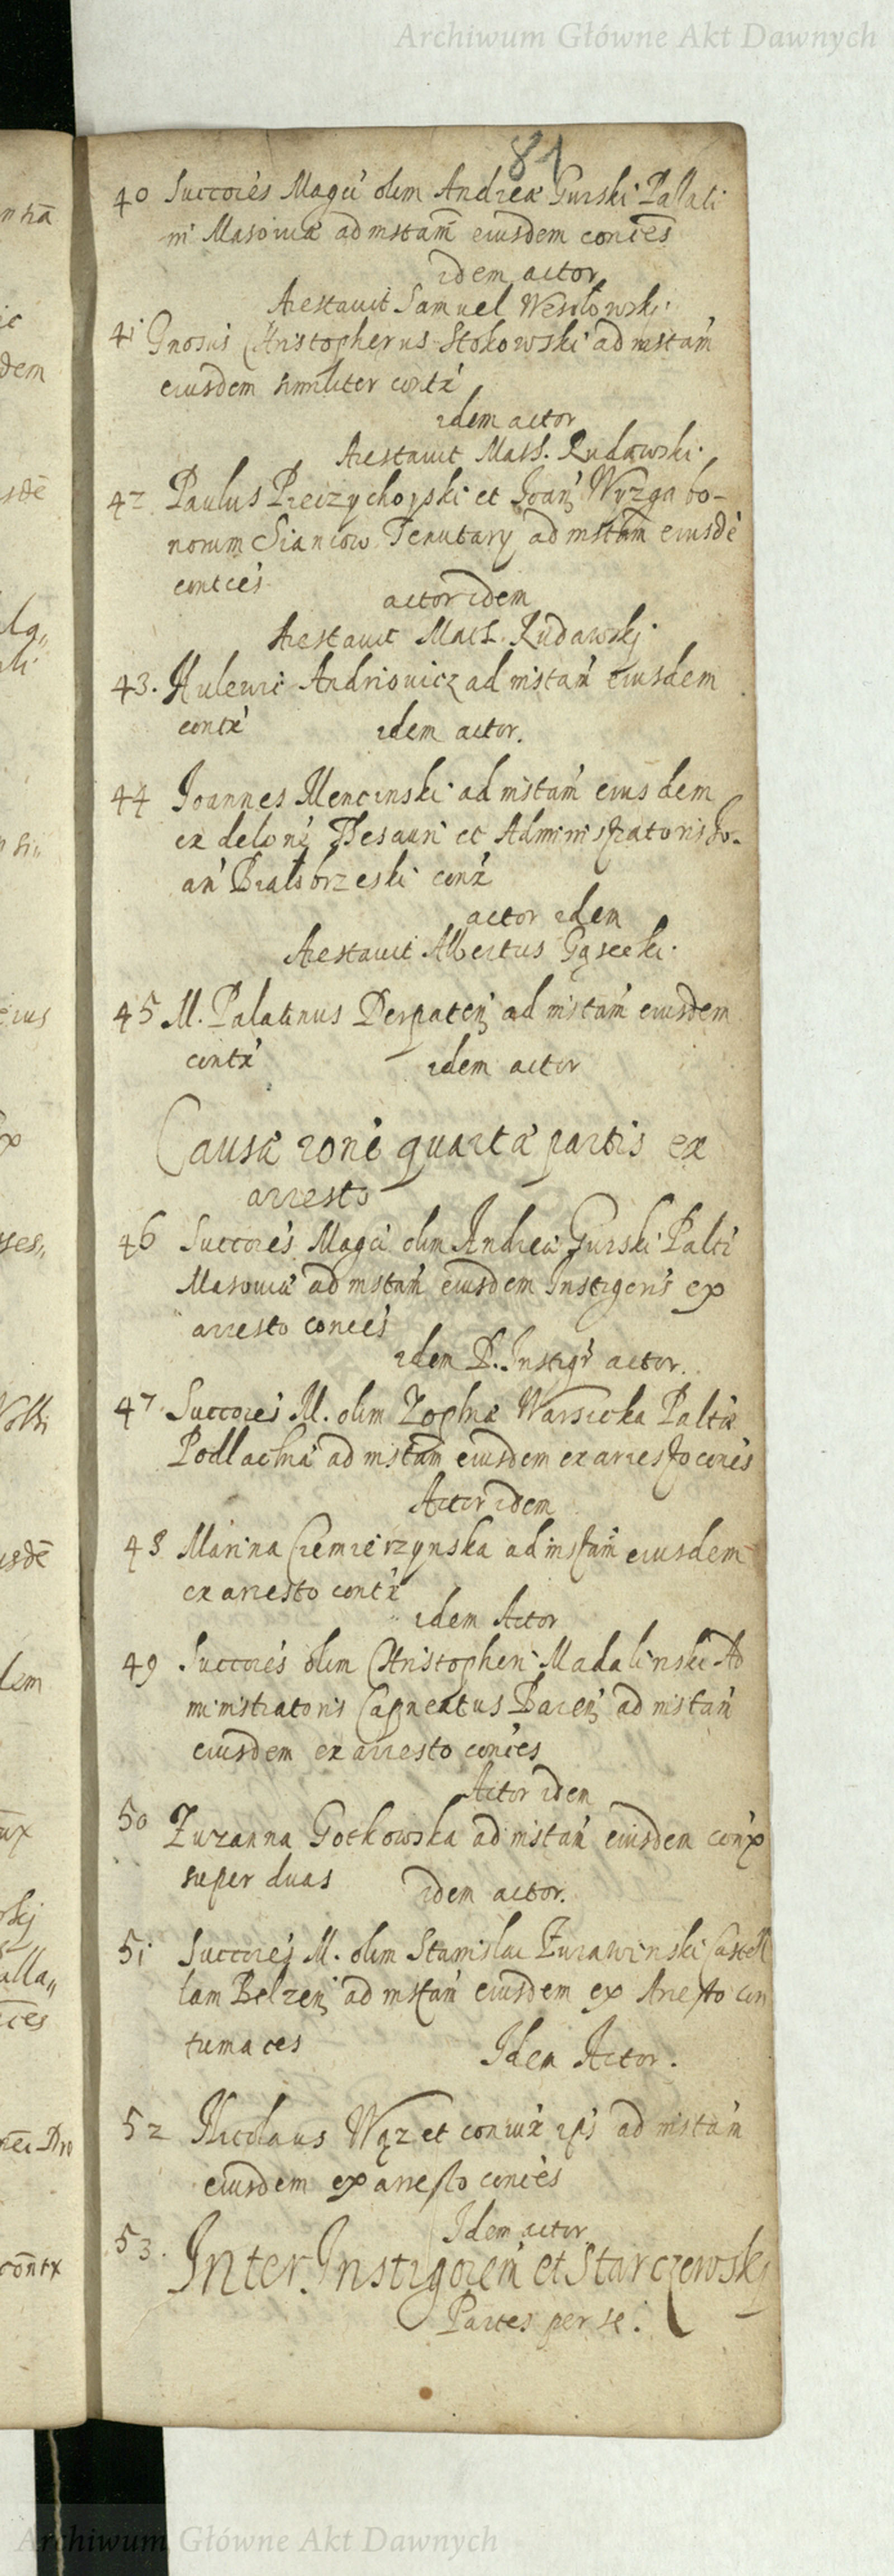 Archiwum Główne Akt Dawnych
81
40 Succorēs Magci olim Andreæ Gurski Pallati
ni Masouiæ ad instam̄ eiusdem contces
idem actor
Arestauit Samuel Wesolowski
41 Gnosus Christopherus Stokowski ad instam̄
eiusdem similiter contx
idem actor
Arestauit Math. Rudawski
42 Paulus et Joan̄ Wyzga bo-
norum Tenutary ad instam̄ eiusdē
contces
actor idem
Arestauit Math. Rudawski
43. Hulewic Andriouicz ad instam̄ eiusdem
contx idem actor.
44 Joannes Mencinski ad instam̄ eius dem
ex delone Thesauri et Administratoris Jo-
an Bialobrzeski conx
actor idem
Arestauit Albertus Gąsecki
45 M. Palatinus Derpateñ ad instam̄ eiusdem
contx idem actor
Causæ rone quartæ partis ex
arresto
46 Succorēs Magci olim Andreæ Gurski Palti
Masouiæ ad instam̄ eiusdem Instigoris ex
arresto contces
idem D. Instigr actor.
47 Succorēs M. olim Zophiæ Warsicka Paltiæ
Podlachiæ ad instam̄ eiusdem ex arresto contces
Actor idem
48 Marina Ciemierzynska ad instam̄ eiusdem
ex arresto contx
idem Actor
49 Succorēs olim Christopheri Madalinski Ad
ministratoris Capneatus Bareñ ad instam̄
eiusdem ex arresto contces
Actor idem
50 Zuzanna Gotkowska ad instam̄ eiusdem conx
super duas idem actor.
51 Succorēs M. olim Stanislai Zurawinski Castell
lani Belzeñ ad instam̄ eiusdem ex Aresto con
tumaces Idem Actor.
52 Nicolaus Wąz et coniux ips ad instam̄
eiusdem ex arresto contces
Idem actor
53. Inter Instigorem et Starczewski
Partes per se.
Archiwum Główne Akt Dawnych